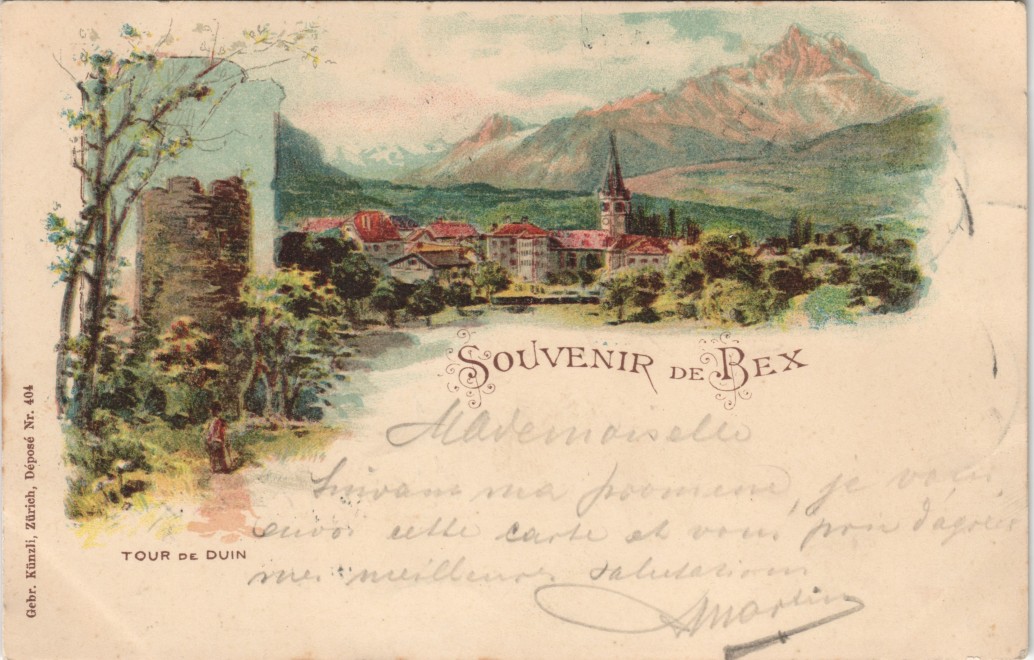 SOUVENIR DE BEX
Mademoiselle
Suivant ma promesse, je vous
envoi cette carte et vous prie d'agréer
mes meilleures salutations
AMartin
TOUR DE DUIN
Gebr. Künzli, Zürich, Déposé Nr. 404